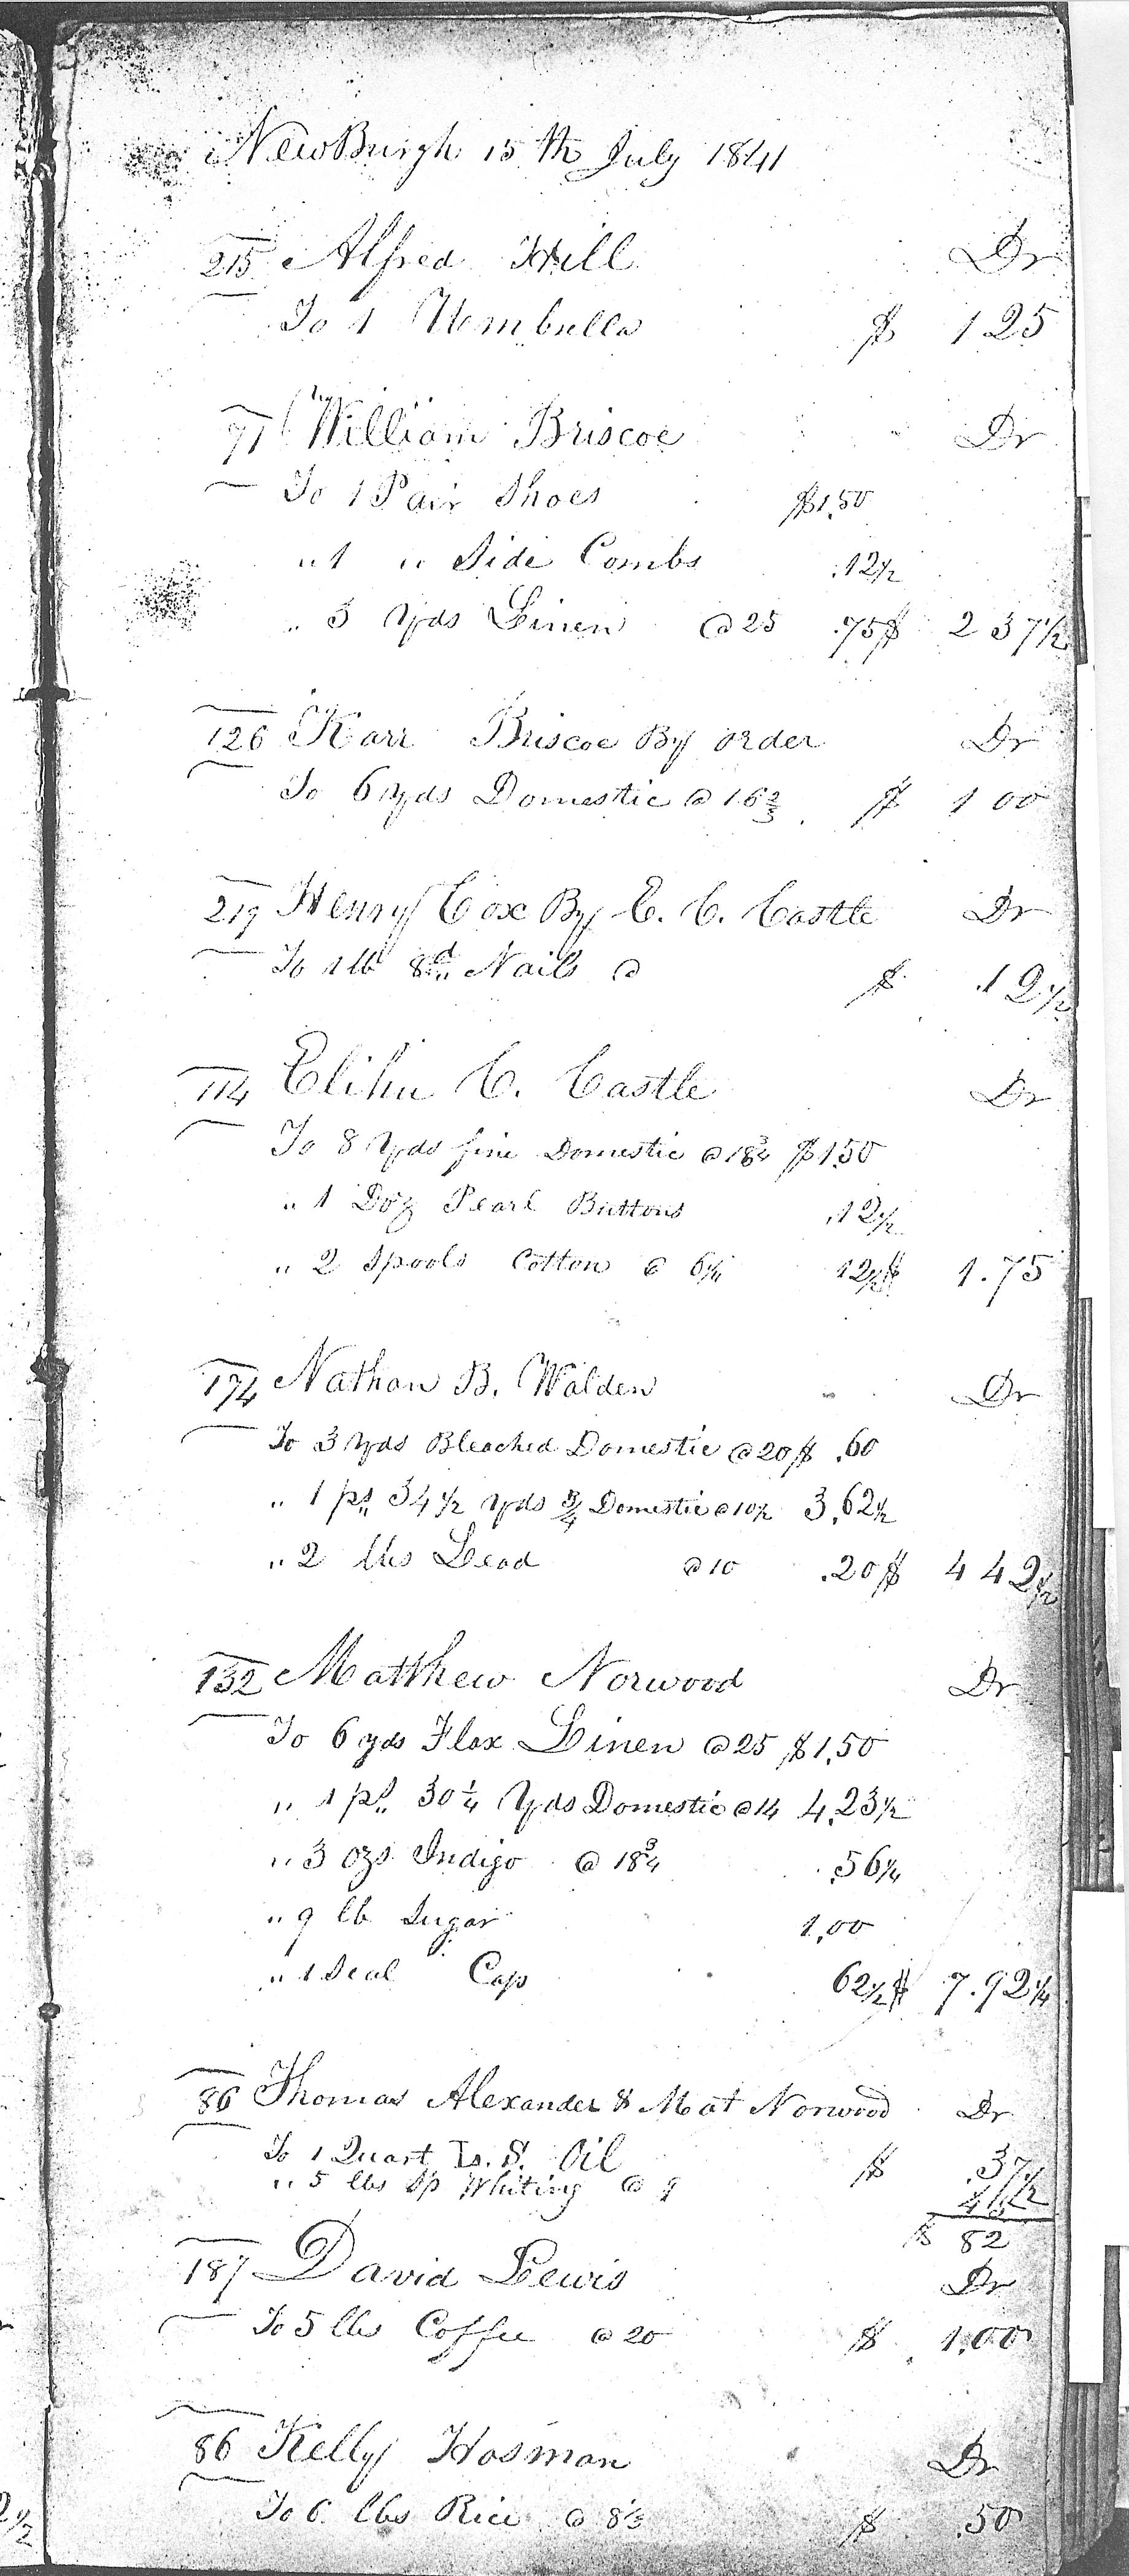 NewBurgh 15th July 1841
215 Alfred Hill Dr
To 1 Umbrella $ 1 25
71 William Briscoe Dr
To 1 Pair Shoes $1,50
" 1 " Side Combs .12½
" 3 Yds Linen @ 25 .75 $ 2 37½
126 Karr Briscoe By order Dr
To 6 Yds Domestic @ 16⅔ $ 1 00
219 Henry Cox By E. C. Castle Dr
To 1 lb 8d Nails @ $ .12½
114 Elihu C. Castle Dr
To 8 Yds fine Domestic @ 18¾ $1.50
" 1 Doz Pearl Buttons .12½
" 2 Spools Cotton @ 6¼ 12½ $ 1.75
174 Nathan B. Walden Dr
To 3 Yds Bleached Domestic @ 20 $ .60
" 1 ps 34½ Yds ¾ Domestic @ 10½ 3,62½
" 2 lbs Lead @ 10 .20 $ 4 42½
132 Matthew Norwood Dr
To 6 yds Flax Linen @ 25 $1,50
" 1 ps 30¼ Yds Domestic @ 14 4,23½
" 3 ozs Indigo @ 18¾ .56¼
" 9 lb Sugar 1,00
" 1 Seal Cap 62½ $ 7.92¼
86 Thomas Alexander & Mat Norwood Dr
To 1 Quart Oil $ .37
" 5 lbs Sp Whiting @ 9
$ 82
187 David Lewis Dr
To 5 lbs Coffee @ 20 $ 1,00
86 Kelly Hosman Dr
To 6 lbs Rice @ 8⅓ $ .50